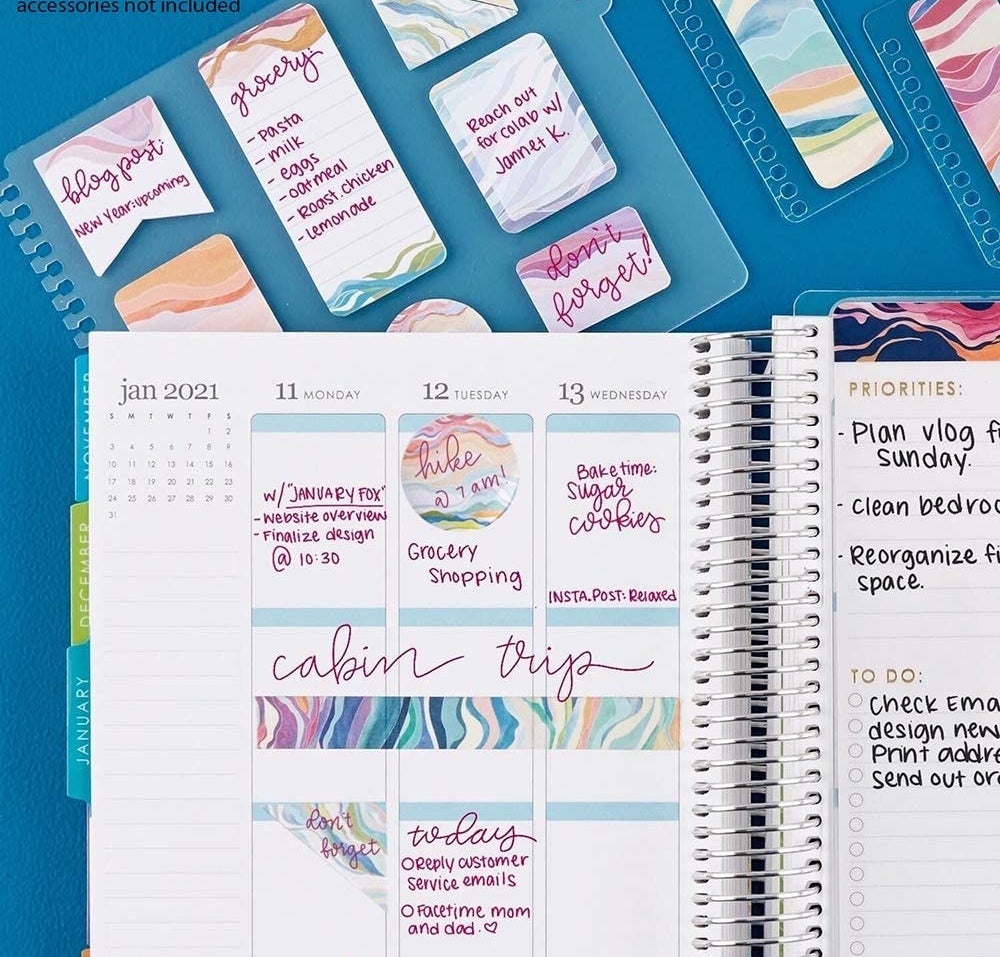 accessories not included
grocery:
- Pasta
- milk
- eggs
- oatmeal
- Roast.chicken
- lemonade
blog post:
New Year:upcoming
Reach out
for colab w/
Jannet K.
don't
forget!
jan 2021
S M T W T F S
1 2
3 4 5 6 7 8 9
10 11 12 13 14 15 16
17 18 19 20 21 22 23
24 25 26 27 28 29 30
31
11 MONDAY
w/ "JANUARY FOX"
- Website overview
- Finalize design
@ 10:30
12 TUESDAY
hike
@ 7 am!
Grocery
Shopping
13 WEDNESDAY
Bake time:
Sugar
cookies
INSTA.POST: Relaxed
cabin trip
don't
forget
today
Reply customer
Service emails
Facetime mom
and dad. ♡
NOVEMBER
DECEMBER
JANUARY
PRIORITIES:
- Plan vlog
Sunday.
- Clean
- Reorganize
space.
TO DO:
Check
design new
Print
Send out